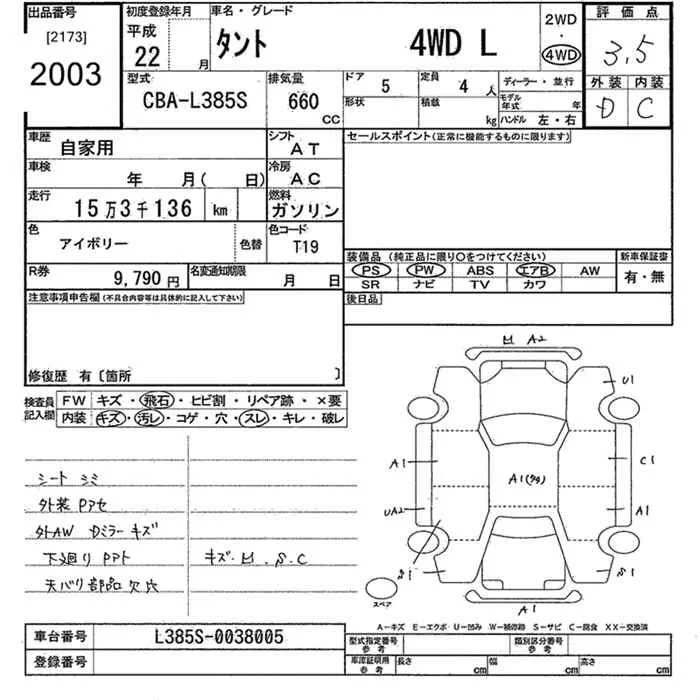 出品番号
[2173]
2003
初度登録年月
平成
22 月
車名・グレード
タント 4WD L
2WD
・
4WD
評価点
3.5
外装 内装
D C
型式
CBA-L385S
排気量
660
CC
ドア
5
定員
4 人
形状
積載
kg
ディーラー・並行
モデル年式 年
ハンドル 左・右
車歴
自家用
シフト
AT
車検
年 月( 日)
冷房
AC
走行
15万3千136 km
燃料
ガソリン
色
アイボリー
色替
色コード
T19
R券
9,790 円
名変通知期限
月 日
セールスポイント(正常に機能するものに限ります)
装備品(純正品に限り○をつけてください)
PS PW ABS エアB AW
SR ナビ TV カワ
新車保証書
有・無
後日品
注意事項申告欄(不具合内容等は具体的に記入して下さい)
修復歴 有〔箇所 〕
検査員記入欄
FW キズ・飛石・ヒビ割・リペア跡・×要
内装 キズ・汚レ・コゲ・穴・スレ・キレ・破レ
シート シミ
外装 Pアセ
外AW Dミラー キズ
下廻り PPト
天バリ部品欠穴
キズ.M.S.C
M A2
U1
A1
C1
A1(タタ)
UA2
A1
S1
S1
A1
スペア
A−キズ E−エクボ・U−凹み W−補修跡 S−サビ C−腐食 XX−交換済
車台番号
L385S-0038005
登録番号
型式指定番号
参考
類別区分番号
参考
車庫証明用
参考
長さ cm
幅 cm
高さ cm